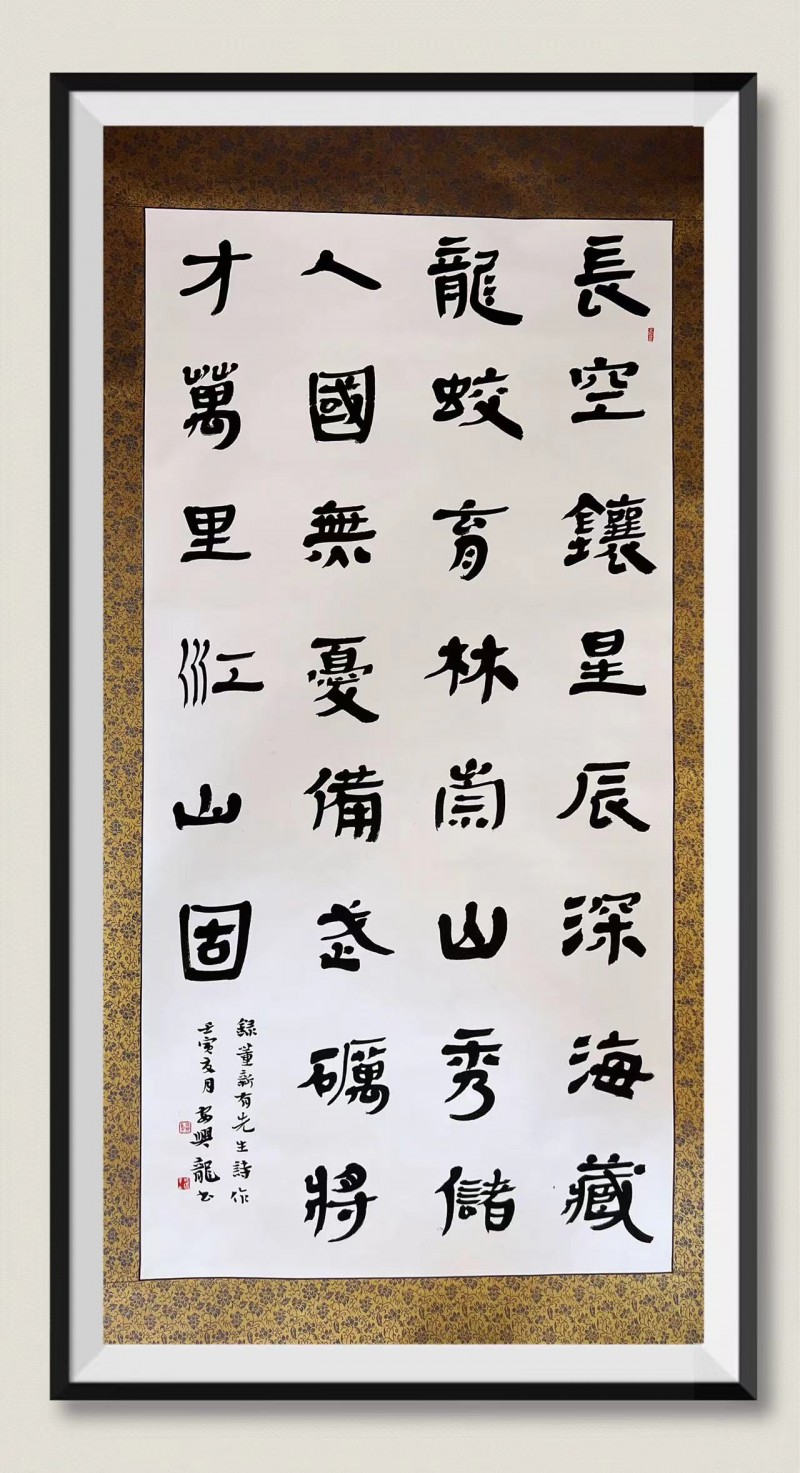 長空鑲星辰深海藏
龍蛟育林崇山秀儲
人國無憂備武礪將
才萬里江山固
錄董新有先生詩作
壬寅亥月安興龍书